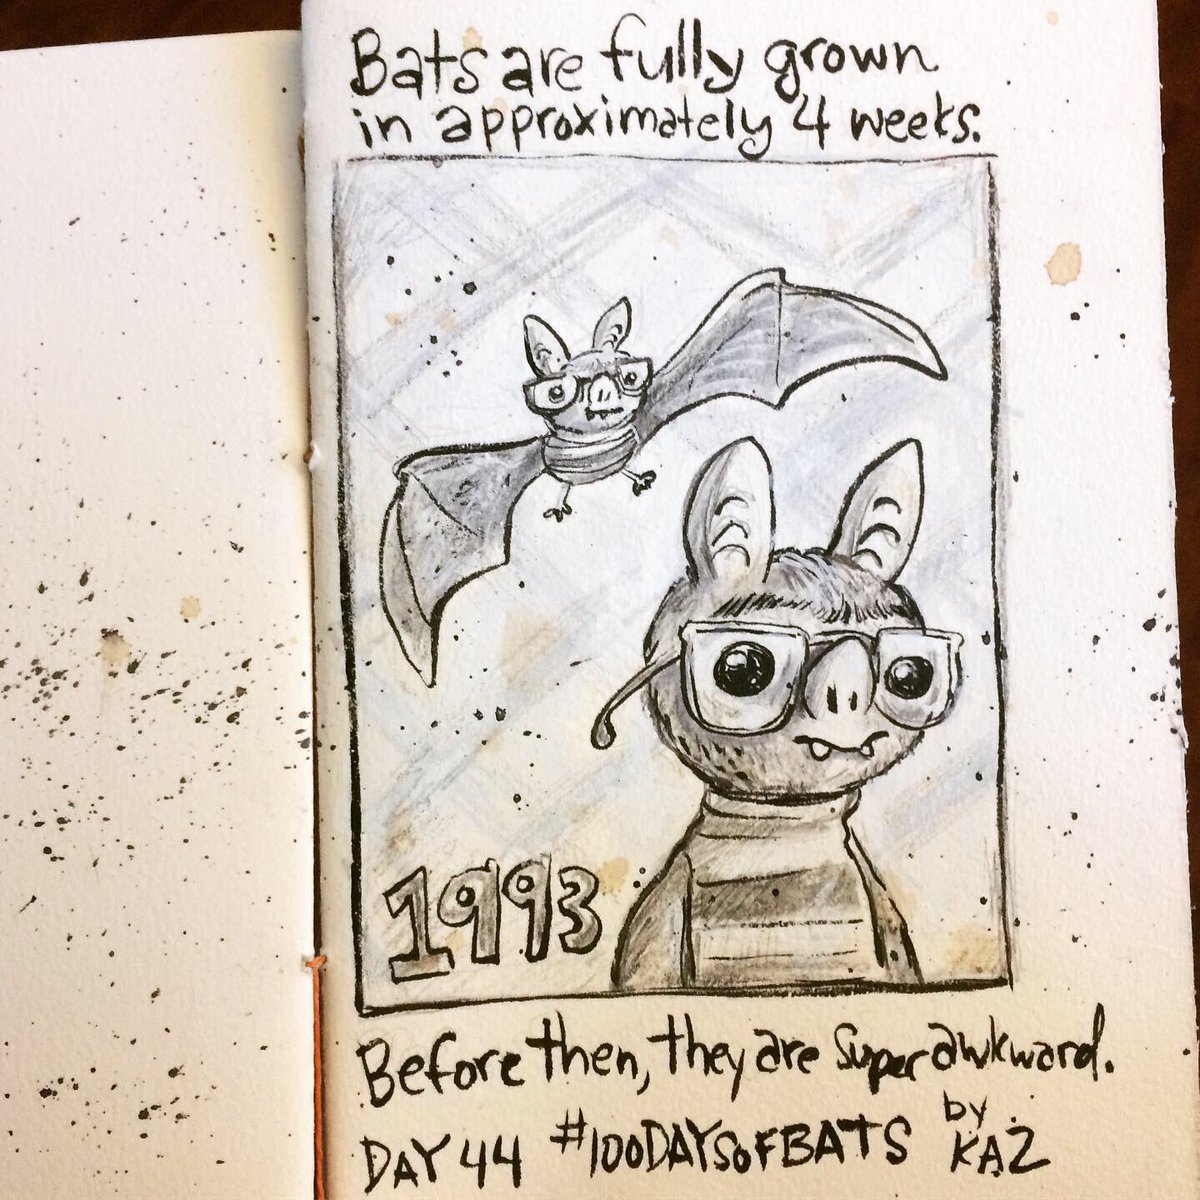 Bats are fully grown
in approximately 4 weeks.
1993
Before then, they are super awkward.
DAY 44 #100DAYSOFBATS by KAZ